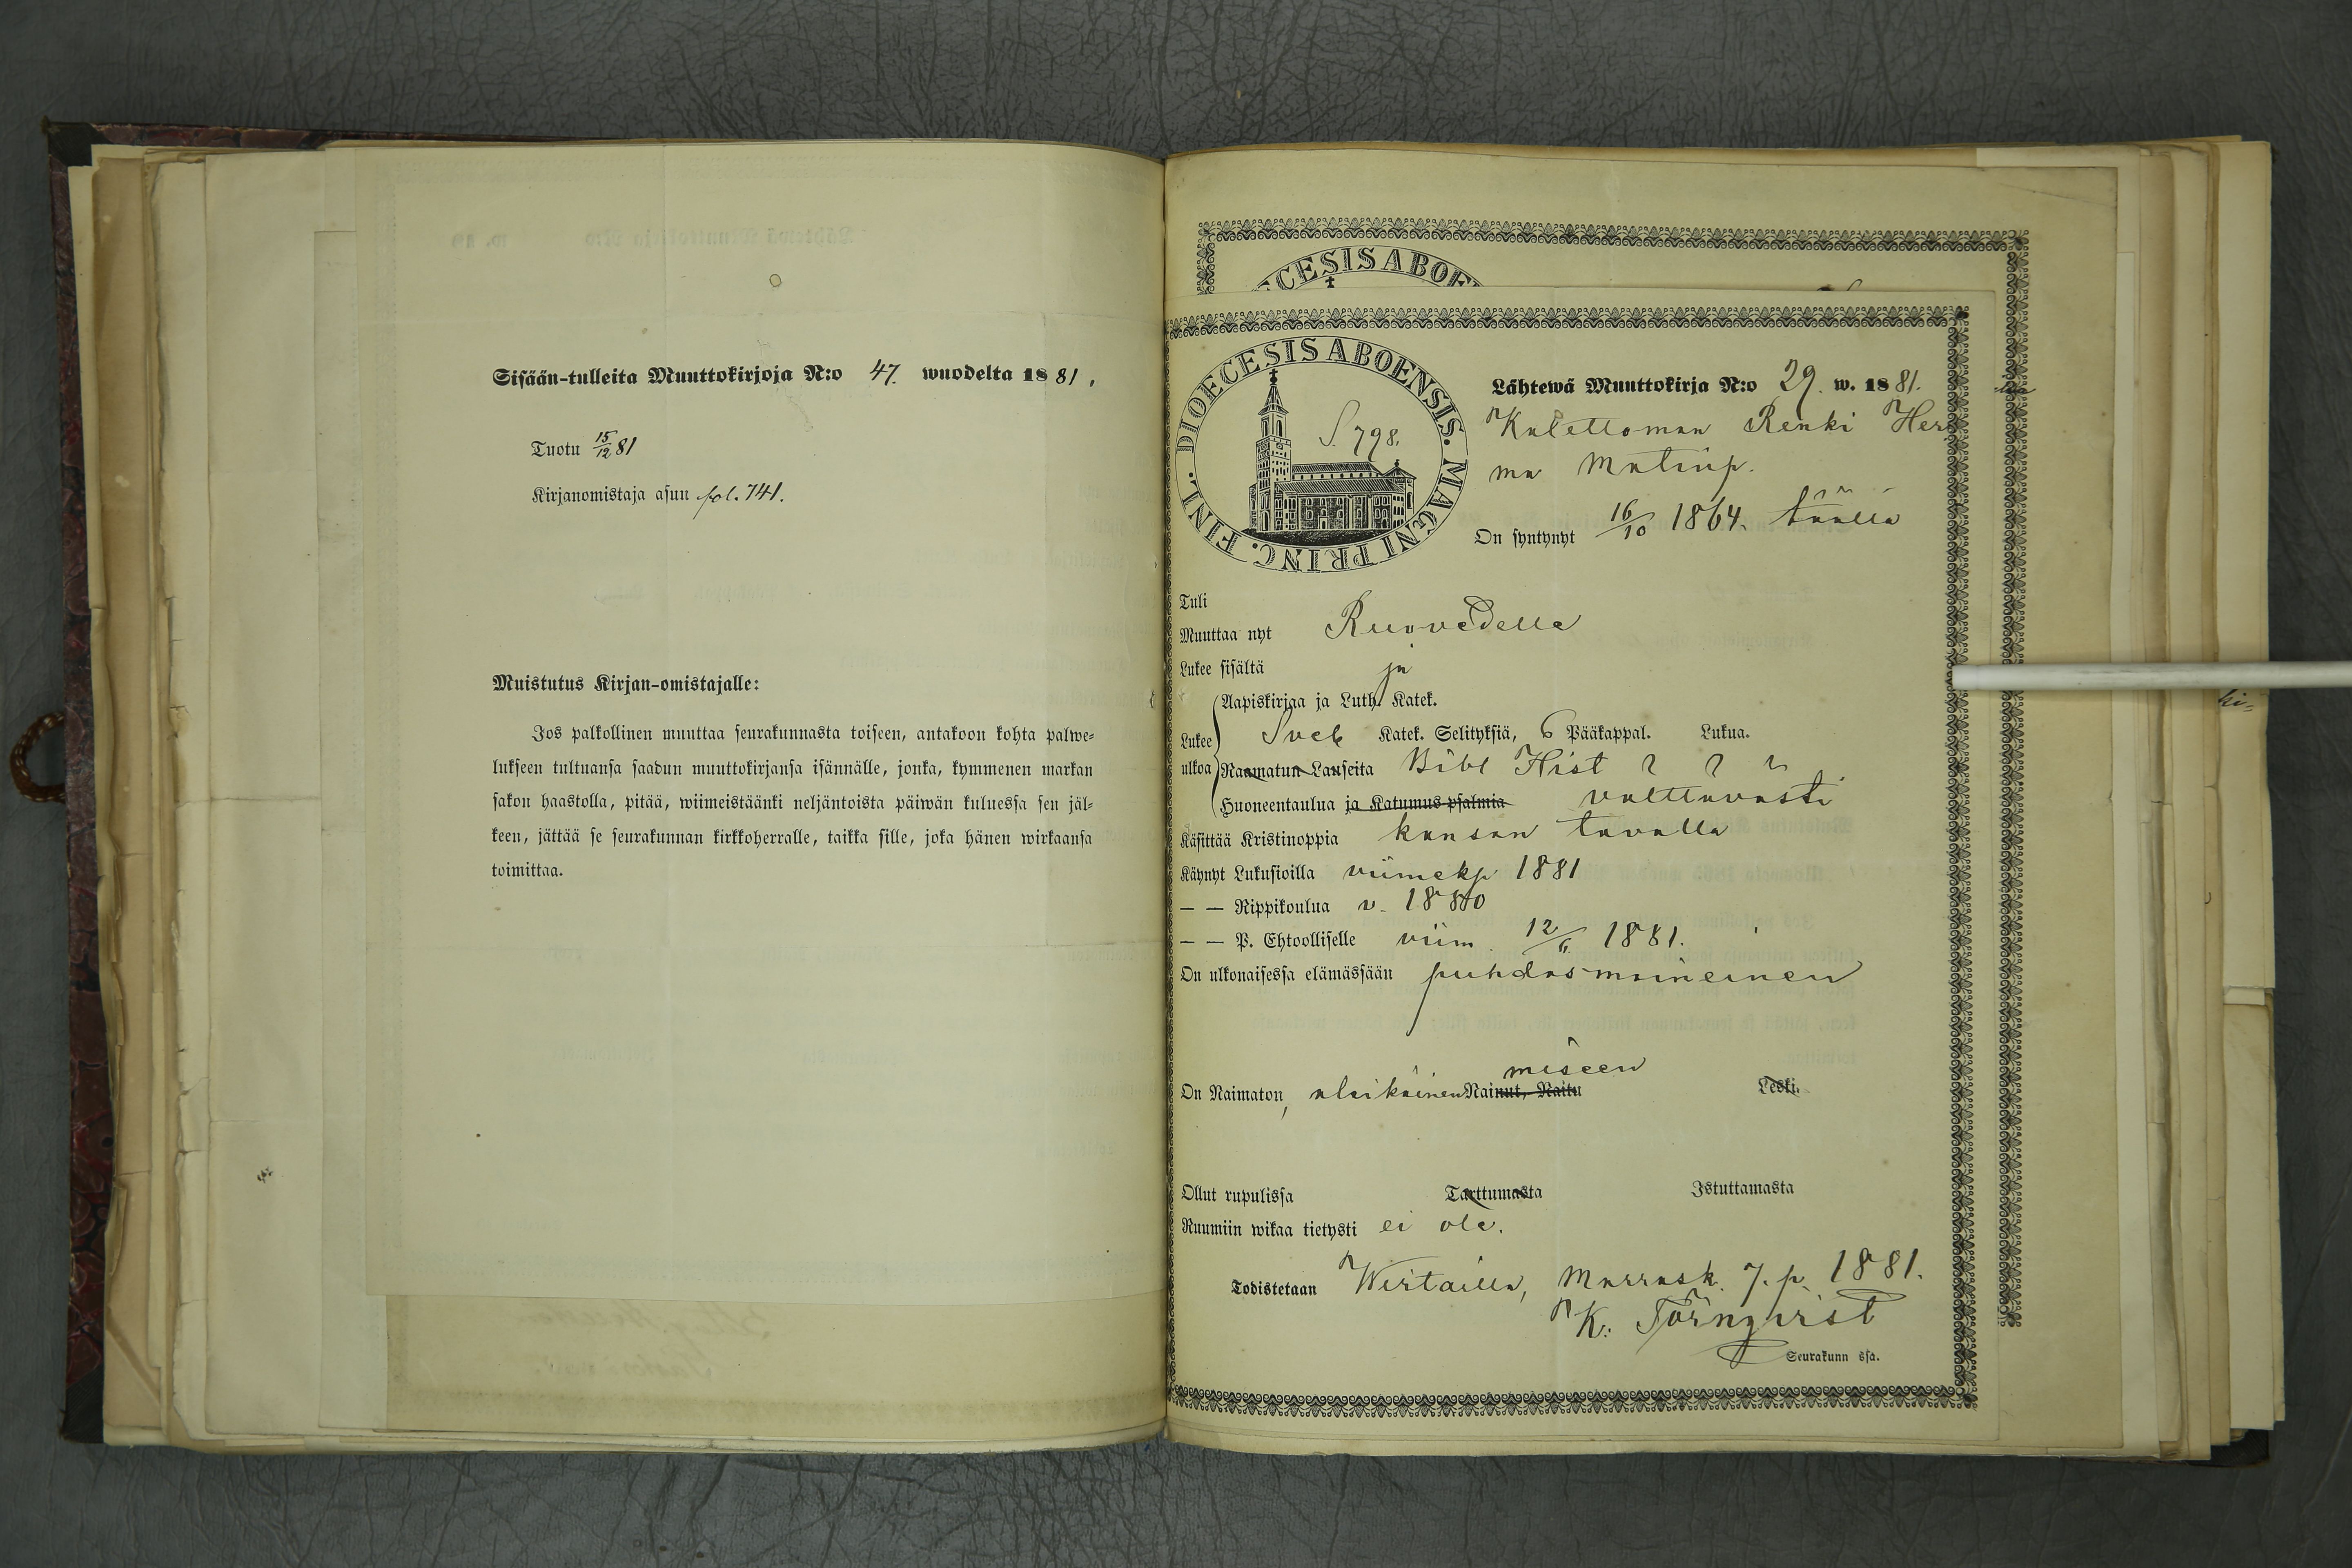 Sisään-tulleita Muuttokirjoja N:o 47. wuodelta 1881.
Tuotu 15/12 81
Kirjanomistaja asuu fol. 741.
Muistutus Kirjan-omistajalle:
Jos palkollinen muuttaa seurakunnasta toiseen, antakoon kohta palwe-
lukseen tultuansa saadun muuttokirjansa isännälle, jonka, kymmenen markan
sakon haastolla, pitää, wiimeistäänki neljäntoista päiwän kuluessa sen jäl-
keen, jättää se seurakunnan kirkkoherralle, taikka sille, joka hänen wirkaansa
toimittaa.
CESIS ABOE
DIOECESIS ABOENSIS. MAGNI PRINC. FINL.
S. 798.
Lähtewä Muuttokirja N:o 29. w. 1881.
Renki Her
ma Matinp.
On syntynyt 16/10 1864. täällä
Tuli
Muuttaa nyt Ruovedelle
Lukee sisältä ja
Aapiskirjaa ja Luth. Katek.
Lukee ulkoa Sveb Katek. Selityksiä, 6 Pääkappal. Lukua.
Raamatun Lauseita Bibl Hist
Huoneentaulua ja Katumus-psalmia valttavasti
Käsittää Kristinoppia kansan tavalla
Käynyt Lukusioilla viimeksi 1881
— — Rippikoulua v. 1880
— — P. Ehtoolliselle viim. 12/6 1881.
On ulkonaisessa elämässään puhdasmaineinen
miseen
On Naimaton, alaikäinen Nainut, Naitu Leski.
Ollut rupulissa Tarttumasta Istuttamasta
Ruumiin wikaa tietysti ei ole.
Todistetaan Wirtailla, Marrask. 7. p. 1881.
K. Törnqvist
Seurakunn ssa.